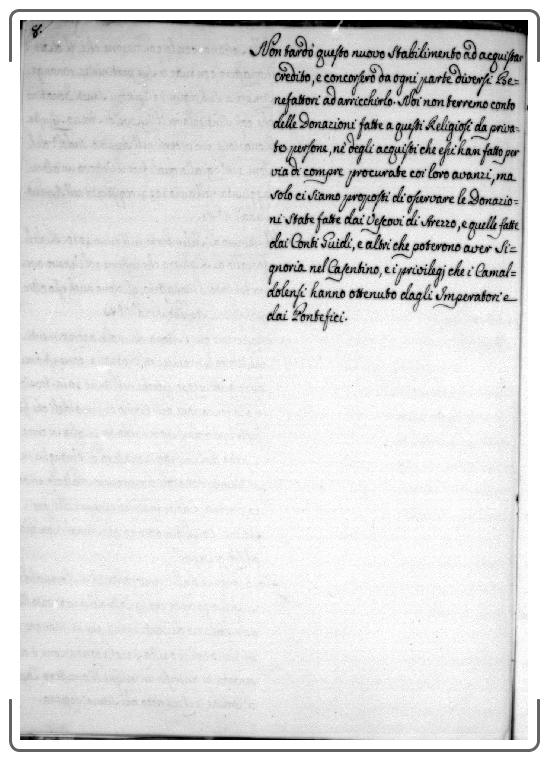 8.
Non tardò questo nuovo Stabilimento ad acquistar
credito, e concorsero da ogni parte diversi Be=
nefattori ad arricchirlo. Noi non terremo conto
delle Donazioni fatte a questi Religiosi da priva=
te persone, nè degli acquisti che essi han fatto per
via di compre procurate coi loro avanzi, ma
solo ci siamo proposti di osservare le Donazio=
ni State fatte dai Vescovi di Arezzo, e quelle fatte
dai Conti Guidi, e altri che poterono aver Si=
gnoria nel Casentino, e i privilegj che i Camal=
dolensi hanno ottenuto dagli Imperatori e
dai Pontefici.